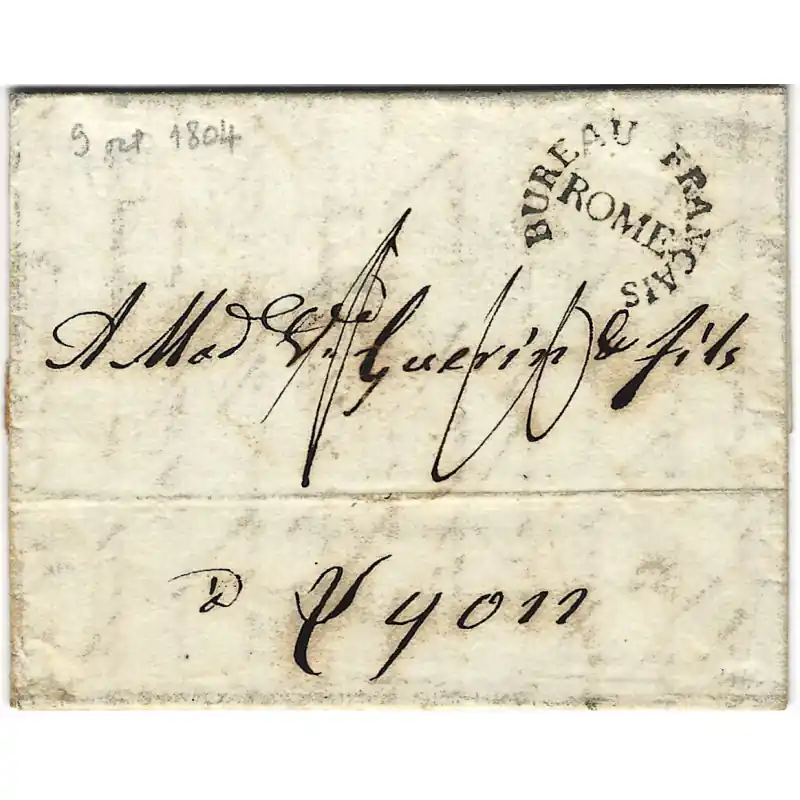 9 oct 1804
BUREAU FRANÇAIS
ROME
A Mad Ve Guerin & fils
à Lyon